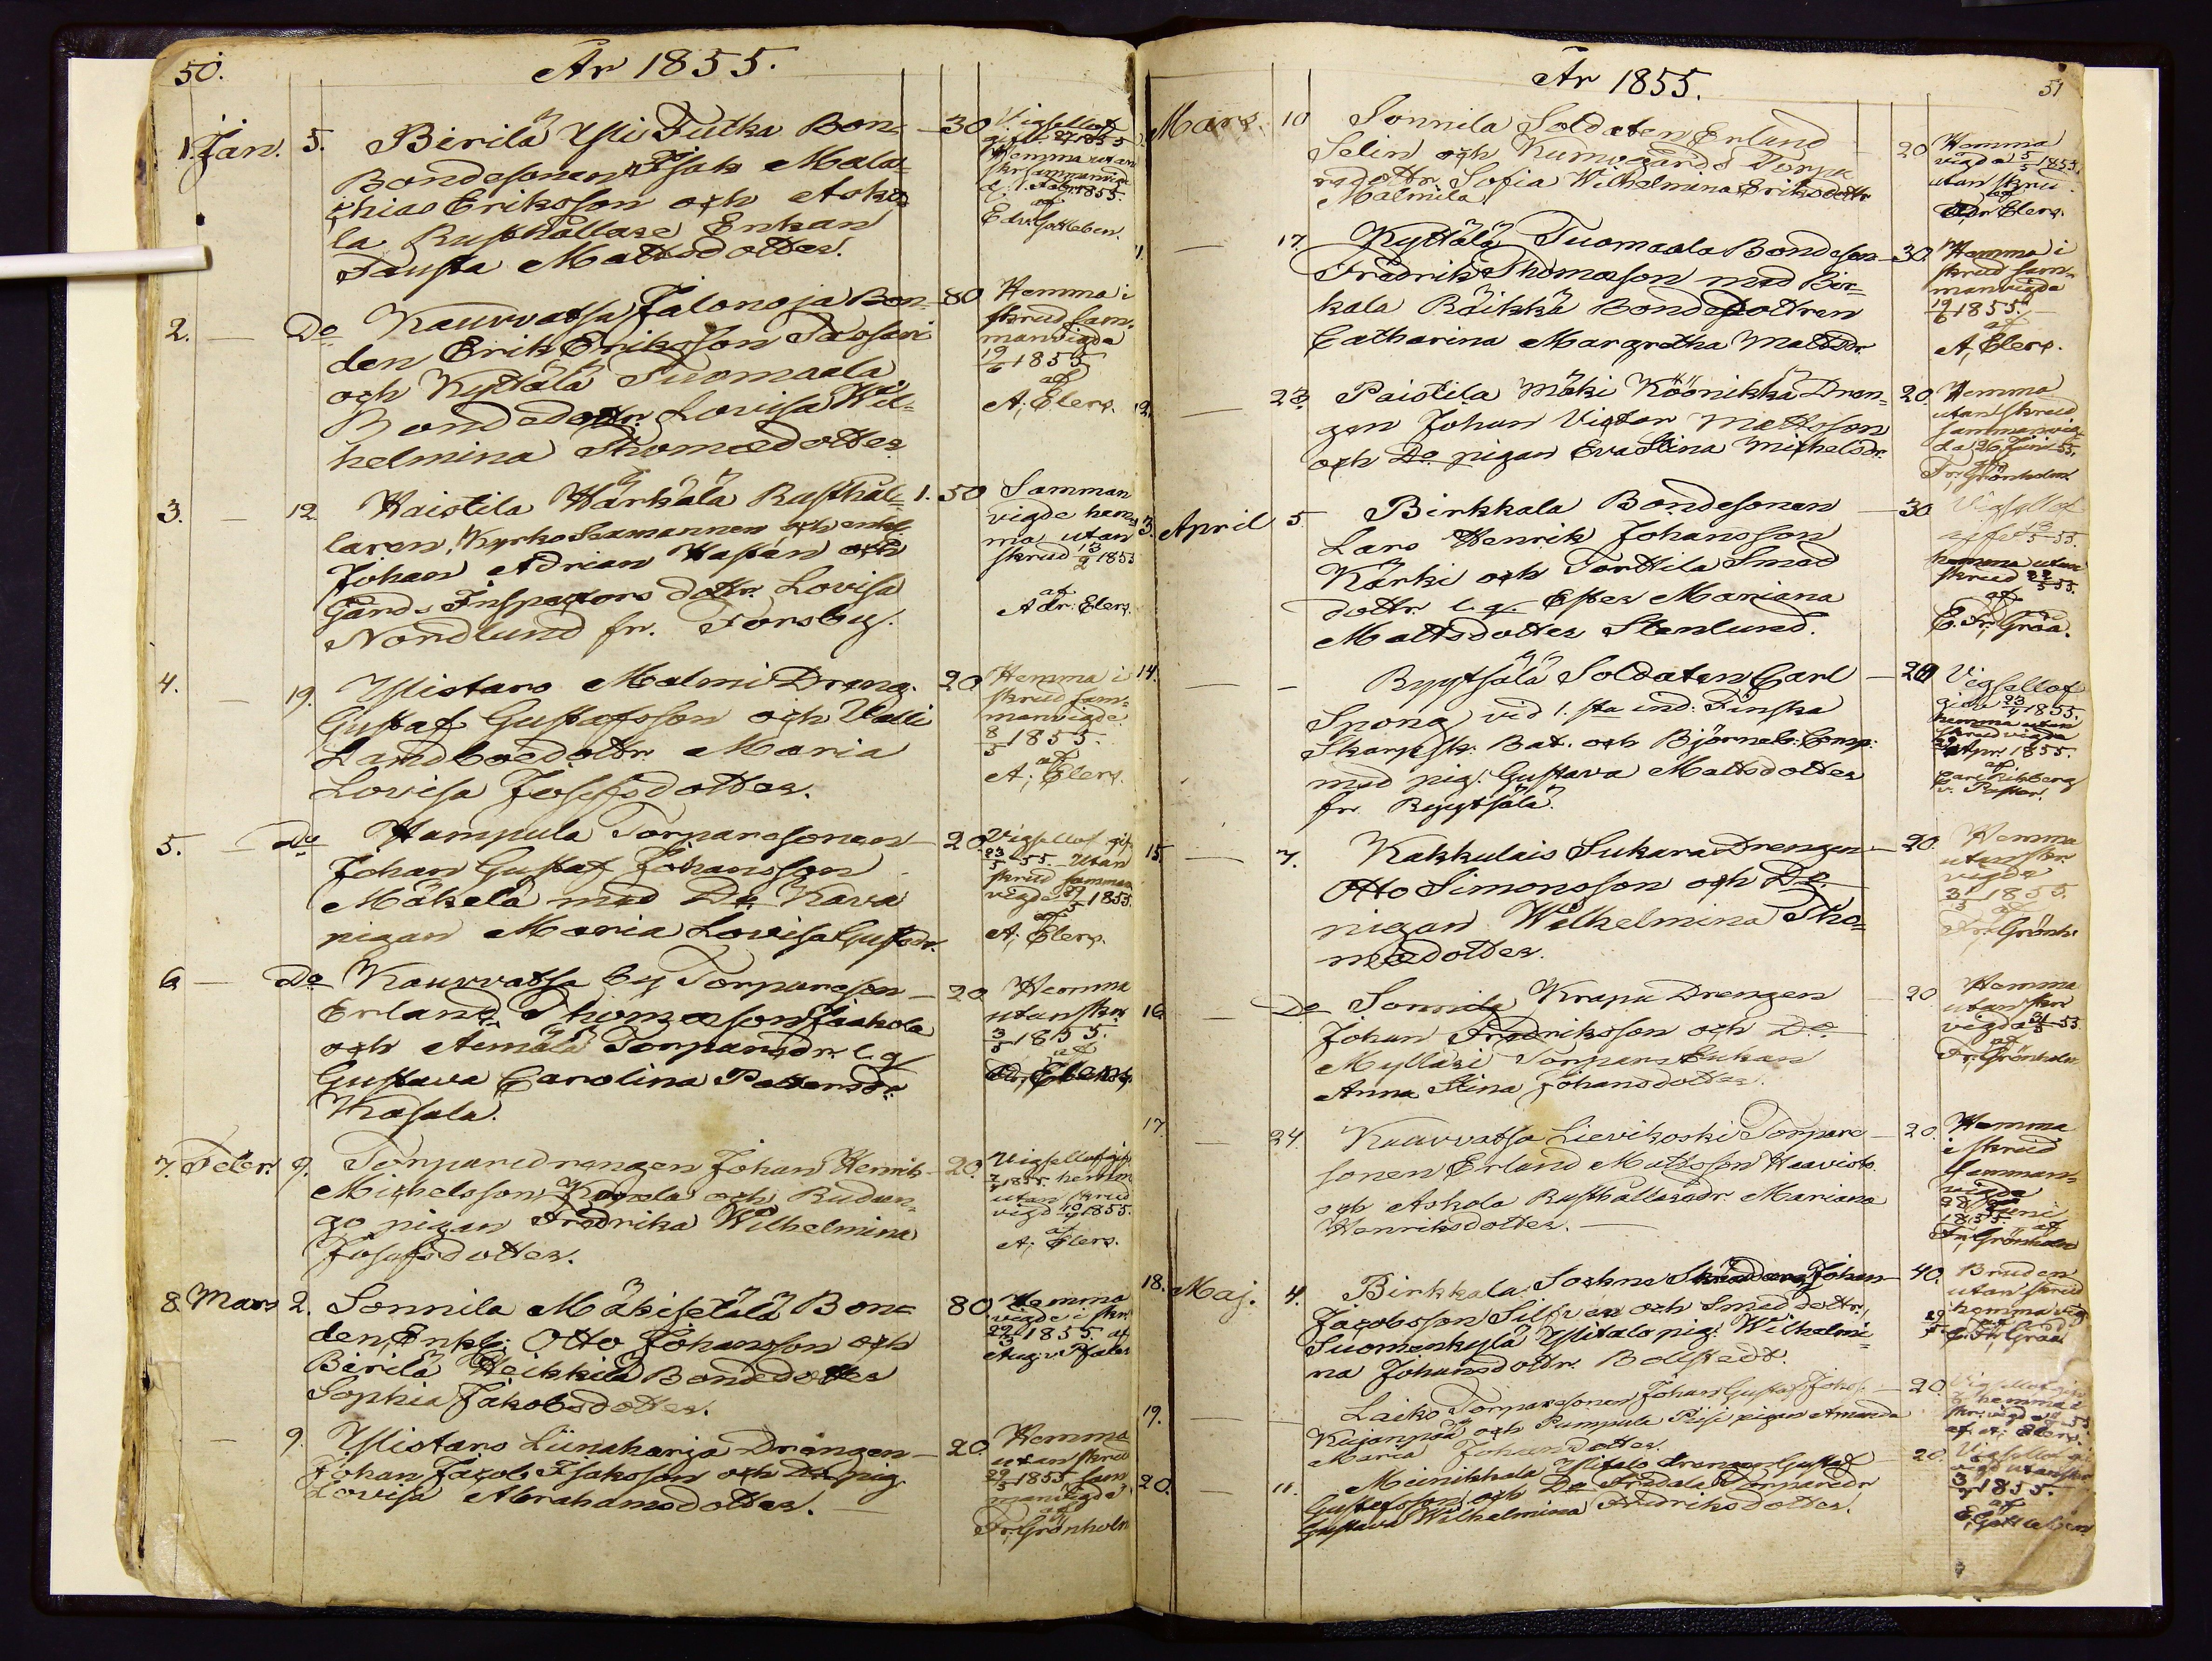 50.
År 1855.
1. Jan. 5. Birilä Yli Tulka Bon= 30
Bondesonen Isak Mala=
chias Eriksson och Asko
la Rusthållare Enkan
Fausta Mattsdotter.
Vigsellof
gifl. 27 1855
Hemma utan
skr sammanvigde
d. 1. Febr 1855.
af
Edv. Gottleben.
2. Do Kauvvatsa Jalonoja Bon= 80
den Erik Eriksson
och Kyttälä Tuomaala
Bondedottr. Lovisa Wil=
helmina Thomædotter
Hemma i
skrud sam=
manvigde
19/6 1855
af
A. Elers.
3. 12. Haistila Härkälä Rusthål= 1. 50
laren, Kyrko Sexmannen och enkl.
Johan Adrian och
Gårds Inspectors dottr. Lovisa
Nordlund fr. Forsby.
Samman
vigde hem=
ma utan
skrud 13/2 1855
af
Adr: Elers.
4. 19. Ylistaro Malmi Dreng. 20
Gustaf Gustafsson och Valli
Landboedottr. Maria
Lovisa Josefsdotter.
Hemma i
skrud sam=
manvigde
8/5 1855.
af
A. Elers.
5. Do Hampula Torparesonen 20
Johan Gustaf Johansson
Mäkelä med Do Kava
pigan Maria Lovisa Gustsdr.
Vigsellof gif.
23/5 55 Utan
skrud samman
vigde 1855.
af
A. Elers.
6 Do Kauvvatsa by Torpareson 20
Erland Thomasson Jaakola
och Aemälä Torparedr. l. g.
Gustava Carolina Pettersdr.
Kasala.
Hemma
utan skr.
3/5 1855.
af
7. Febr. 9. Torparedrengen Johan Henrik 20
Michelsson och Rudan=
go pigan Fredrika Wilhelmina
Josefsdotter.
Vigsellof gif.
1855. hemma
utan skrud
vigd 1855.
af
A. Elers.
8. Mars 2. Sonnila Mäkisetälä Bon= 80
den, Enkl: Otto Johansson och
Birilä Heikkilä Bondedotter
Sophia Jakobsdotter.
Hemma
vigde i skr.
22/3 1855 af
9. Ylistaro Liinaharja Drängen 20
Johan Jacob Isaksson och Do pig.
Lovisa Abrahamsdotter.
Hemma
utan skrud
29/5 1855 sam
manvigde
af
Fr. Grönholm
År 1855.
51
Mars. 10 Sonnila Soldaten Erlund 20
Selin och Kumogårds Torpa
redottr. Sofia Wilhelmina Eriksdottr
Malmila
Hemma
vigda 5/5 1855.
utan skrud
af
Adr Elers.
11. 17. Kyttälä Tuomaala Bondeson 30
Fredrik Thomasson med Bir=
kala Räikkä Bondedottren
Catharina Margretha Mattsdr.
Hemma i
skrud sam=
manvigde
19/6 1855.
af
A. Elers.
12. 23 Paistila Mäki Köönikkä Dren= 20
gen Johan Victor Mattsson
och Do pigan Eva Stina Michelsdr.
Hemma
utan skrud
sammanvig
da 26 Juni 55.
af
Fr. Grönholm
13. April 5. Birkkala Bondesonen 30
Lars Henrik Johansson
Kärki och Torttila Smed
dottr. l. g. Ester Mariana
Mattsdotter Stenlund.
Vigsellof
55.
hemma utan
skrud 22/5 55.
af
E. Fr. Gråå.
14. Ryytsälä Soldaten Carl 20
Spong vid 1. sta ind: Finska
Skarpsk: Bat. och Björneb: Comp:
med pig. Gustava Mattsdotter
fr. Ryytsälä.
Vigsellof
23/4 1855.
hemma utan
skrud vigda
29 Apr. 1855.
af
Carl
v. Pastor.
15. 7. Kakkulais Sukara Drengen 20.
Otto Simonsson och Do
pigan Wilhelmina Tho=
mædotter.
Hemma
utan skr.
vigda
31/5 1855.
af
Fr. Grönh.
16 Do Sonnila Krapu Drengen 20
Johan Fredriksson och Do
Mylläri Torpare Enkan
Anna Stina Johansdotter.
Hemma
utan skr
vigda 31/5 55
af
Fr. Grönholm
17. 24. Kauvvatsa Lievikoski Torpare 20.
sonen Erland Mattsson Haavisto
och Askola Rusthållaredr. Mariana
Henriksdotter.
Hemma
i skrud
samman=
vigda
Juni
1855. af
Fr. Grönholm
18. Maj. 4. Birkkala Sochne Skräddaren Johan 40.
Jacobsson Silfven och Smed dottr.
Suomenkylä Ylitalo pig. Wilhelmi=
na Johansdottr. Bollstedt.
Bruden
utan skrud
hemma vig
29/5 af
E. Fr. Gråå
19. Laiko Torparesonen Johan Gustaf Johss. 20.
Kujanpää och Pumpula Piisi pigan Amanda
Maria Johansdotter.
Vigsellof gif
hemma i
skr. vigd 55
af A. Elers.
20. 11. Meinikkala Ylitalo drengen Gustaf 20.
Gustafsson och Do Fredala Torparedr
Gustava Wilhelmina Fredriksdotter.
Vigsellof gif
vigd utan skr
3/7 1855.
af
E. Gottleben